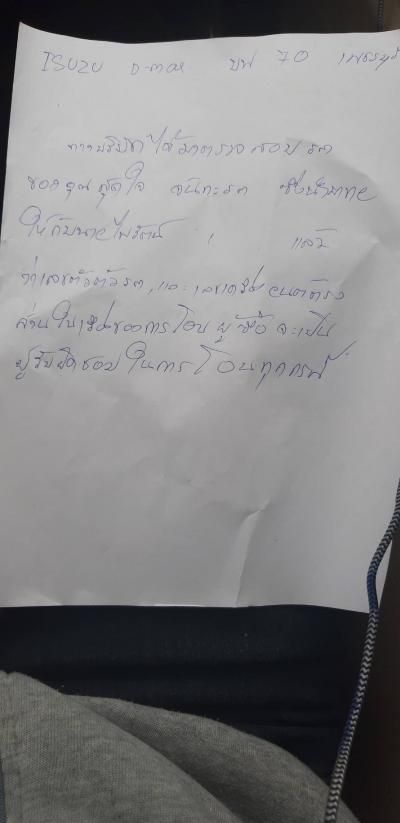 ISUZU D-max บฬ 70 เพชรบุรี
ทางบริษัทได้มาตรวจสอบรถ
ของคุณสุดใจ จันทะรถ ซึ่งนำมาขาย
ให้กับนายไพรัตน์ แล้ว
ว่าเลขตัวตัวรถ, และเลขเครื่องยนต์ตรง
ส่วนในเรื่องของการโอน ผู้ซื้อจะเป็น
ผู้รับผิดชอบในการโอนทุกกรณี